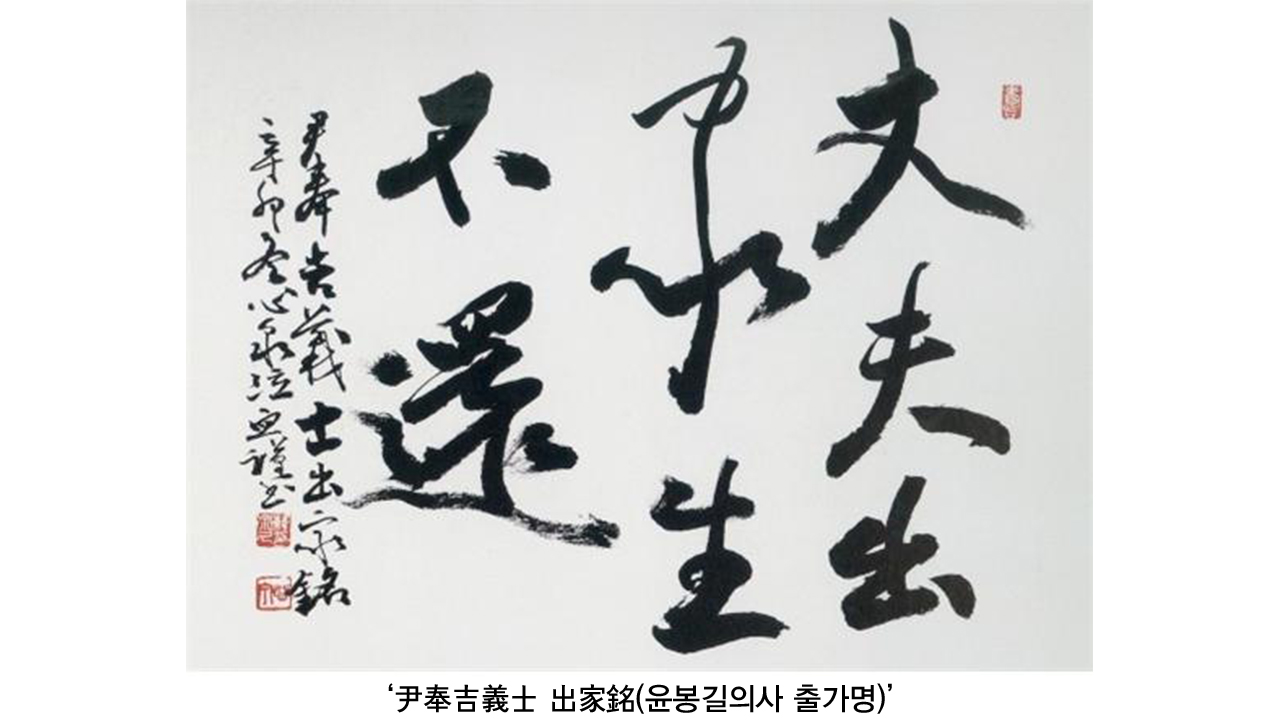 丈夫出
家生
不還
尹奉吉義士出家銘
辛卯冬心泉 謹書
‘尹奉吉義士 出家銘(윤봉길의사 출가명)’